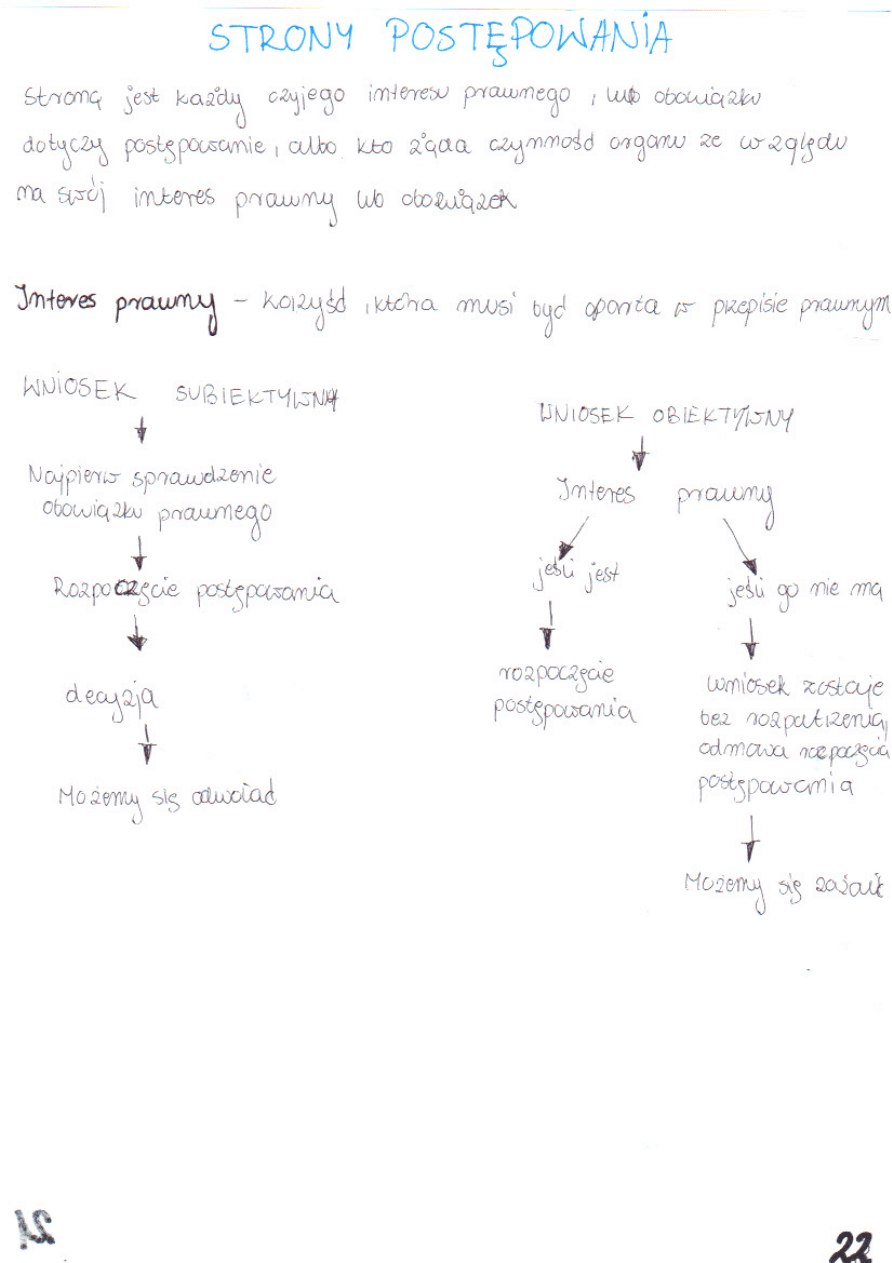 STRONY POSTĘPOWANIA
Stroną jest każdy czyjego interesu prawnego, lub obowiązku
dotyczy postępowanie, albo kto żąda czynność organu ze względu
na swój interes prawny lub obowiązek
Interes prawny – korzyść, która musi być oparta w przepisie prawnym
WNIOSEK SUBIEKTYWNA
Najpierw sprawdzenie
obowiązku prawnego
Rozpoczęcie postępowania
decyzja
Możemy się odwołać
WNIOSEK OBIEKTYWNY
Interes prawny
jeśli jest
rozpoczęcie
postępowania
jeśli go nie ma
wniosek zostaje
bez rozpatrzenia,
odmowa rozpoczęcia
postępowania
Możemy się zażalić
21
22